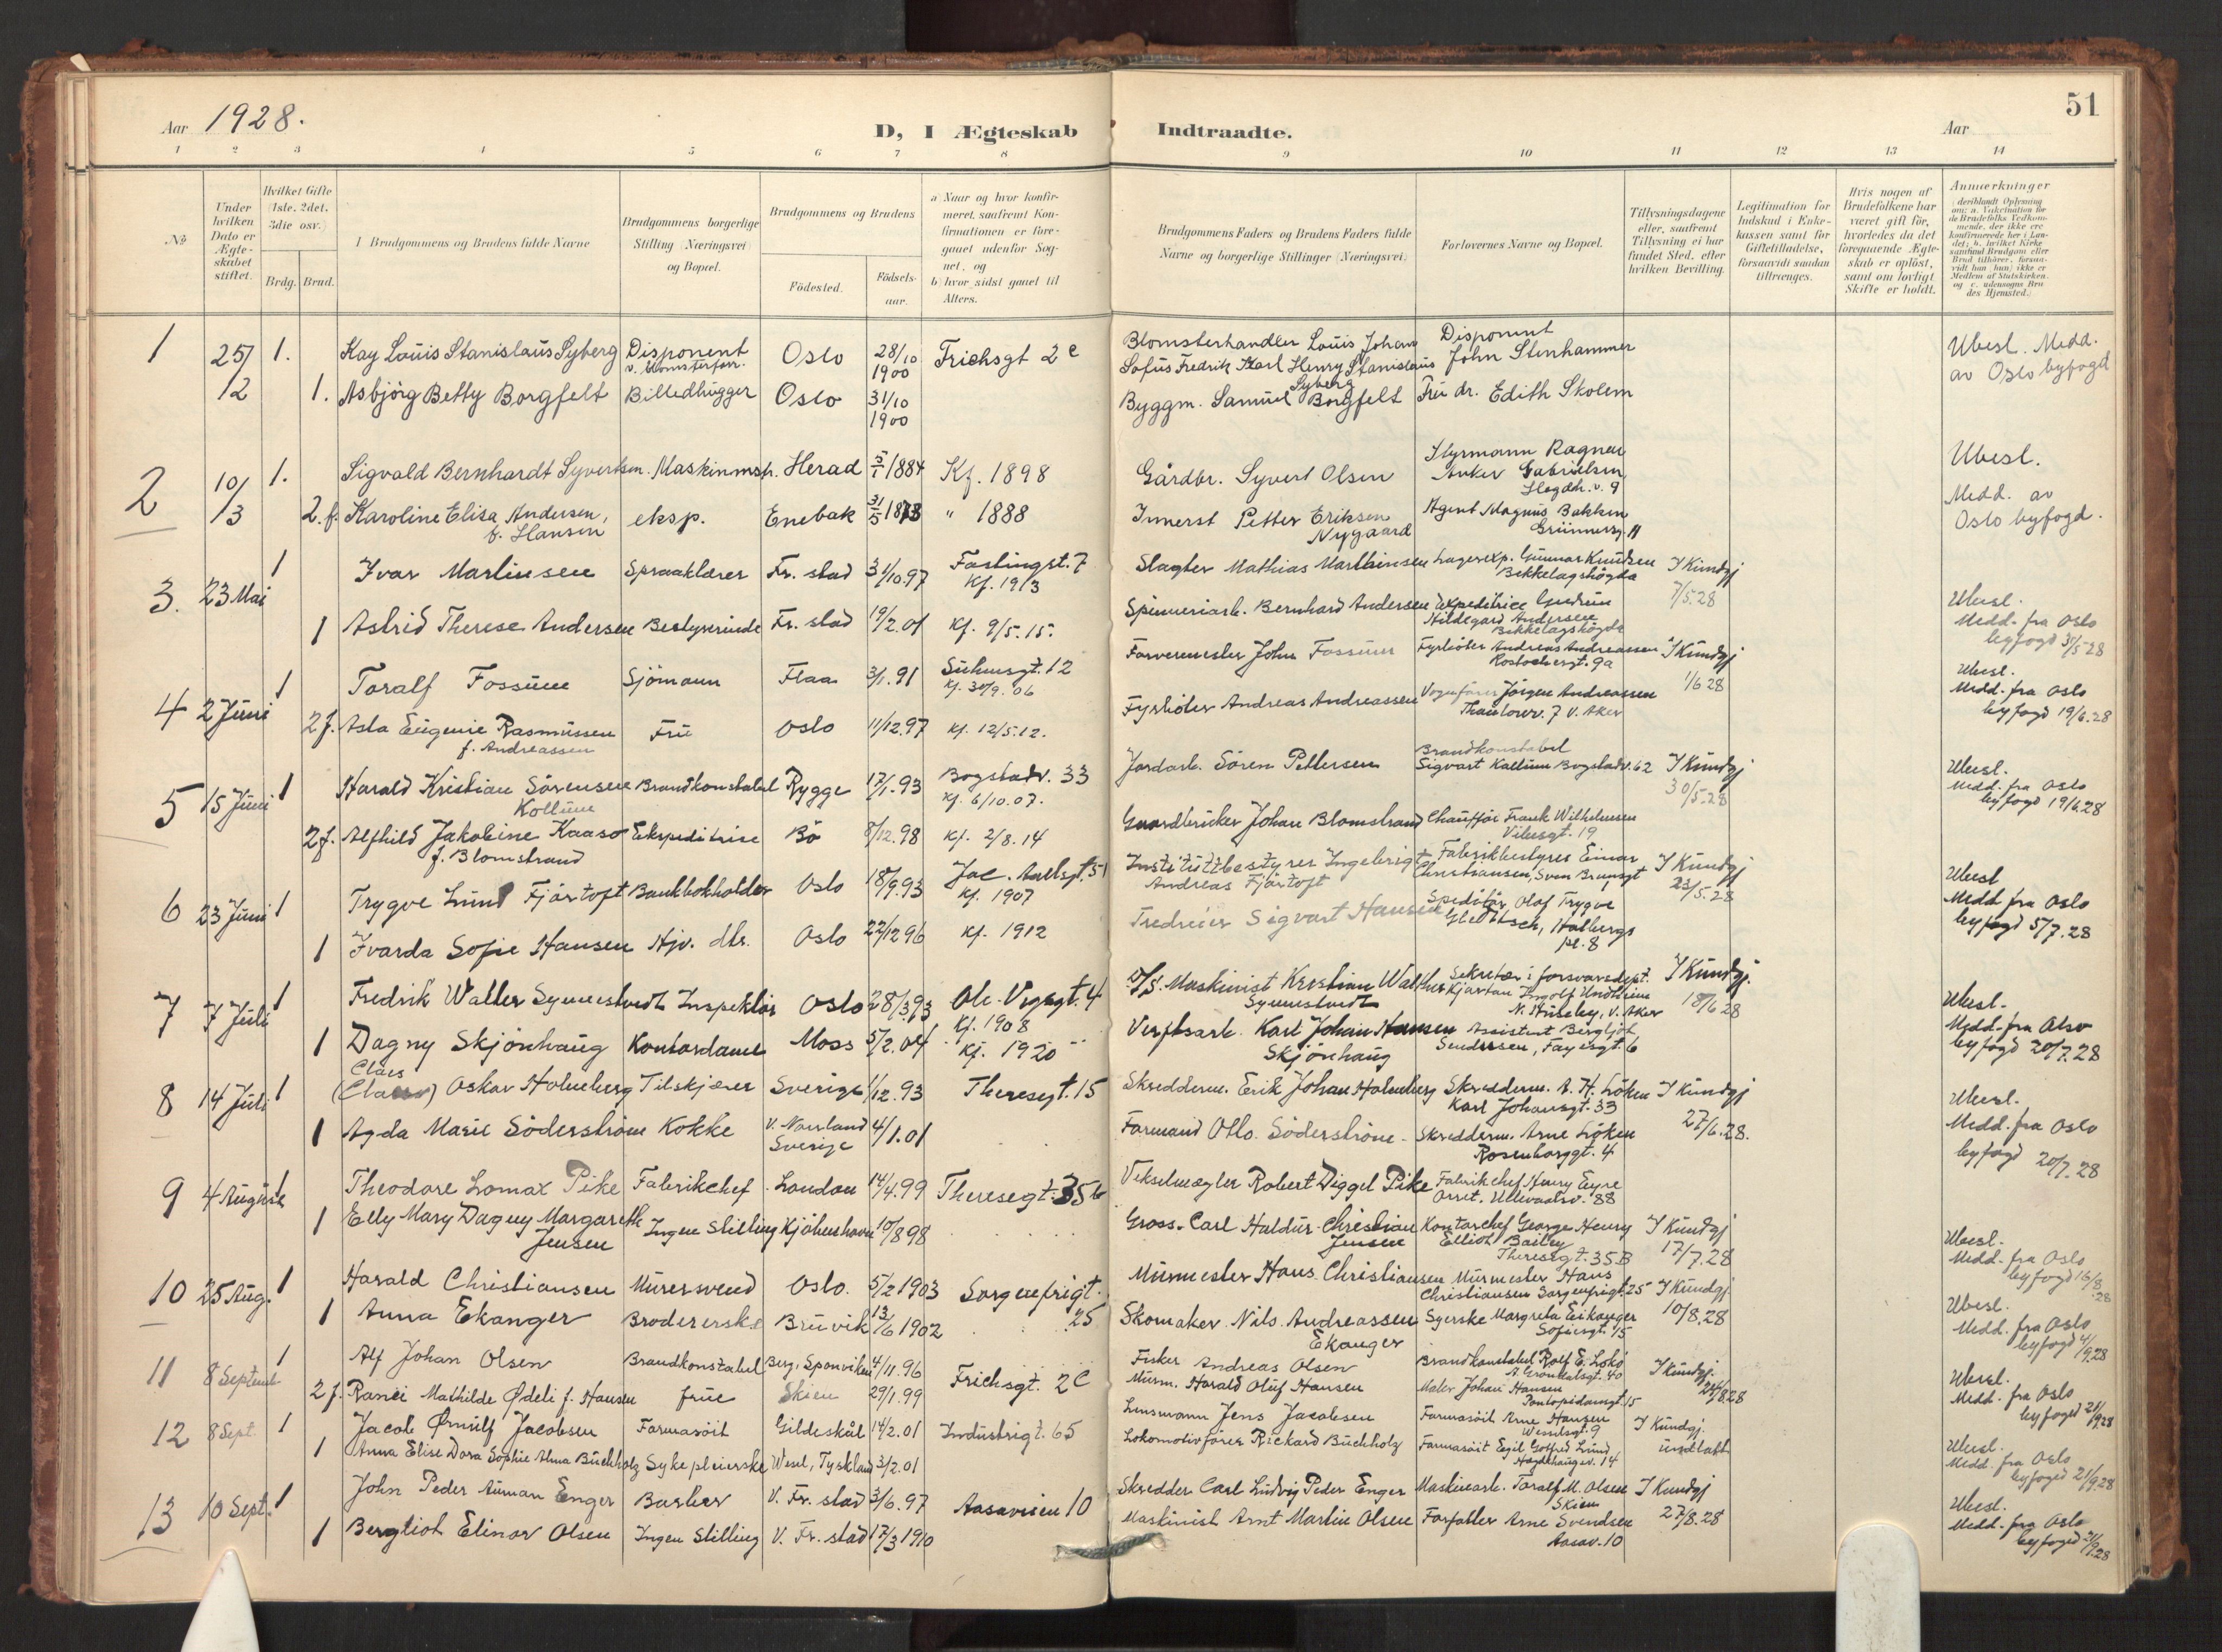 Aar 1928.
D, I Ægteskab Indtraadte.
Aar
51
1 2 3 4 5 6 7 8 9 10 11 12 13 14
No
Under hvilken Dato er Ægteskabet stiftet.
Hvilket Gifte (1ste, 2det, 3die osv.)
Brdg. Brud.
I Brudgommens og Brudens fulde Navne
Brudgommens borgerlige Stilling (Næringsvei) og Bopæl.
Brudgommens og Brudens
Födested. Födsels-aar.
a) Naar og hvor konfirmeret, saafremt Konfirmationen er foregaaet udenfor Sognet, og
b) hvor sidst gaaet til Alters.
Brudgommens Faders og Brudens Faders fulde Navne og borgerlige Stillinger (Næringsvei)
Forlovernes Navne og Bopæl.
Tillysningsdagene eller, saafremt Tillysning ei har fundet Sted, efter hvilken Bevilling.
Legitimation for Indskud i Enkekassen samt for Giftetilladelse, forsaavidt saadan tiltrænges.
Hvis nogen af Brudefolkene har været gift för, hvorledes da det foregaaende Ægteskab er oplöst, samt om lovligt Skifte er holdt.
Anmærkninger
1 25/12 1. Kay Louis Stanislaus Syberg Disponent v. Blomsterforr. Oslo 28/10 1900 Frichsgt 2c
Blomsterhandler Louis Johan Sofus Fredrik Karl Henry Stanislaus Syberg
Disponent John Stenhammer
Ubesl. Medd. av Oslo byfogd
1. Asbjörg Betty Borgfelt Billedhugger Oslo 31/10 1900
Byggm. Samuel Borgfelt Fru dr. Edith Skolem
2 10/3 1. Sigvald Bernhardt Syvertsen. Maskinmstr. Herad 5/1 1884 Kf. 1898
Gårdbr. Syvert Olsen
Styrmann Ragnar Anker Gabrielsen Hegdh.v. 9
Ubesl.
Medd. av Oslo byfogd.
2.f. Karoline Elisa Andersen, f. Hansen eksp. Enebak 31/5 1873 " 1888
Innerst Petter Eriksen Nygaard
Agent Magnus Bakken Grünnersg. 11
3. 23 Mai 1 Ivar Martinsen Spraaklærer Fr. stad 31/10.97 Fastingst. 7 Kf. 1913
Slagter Mathias Marthinsen Lagerexp. Gunnar Knudsen Bekkelagshögda
I Kundgj 7/5.28
Ubesl. Medd. fra Oslo byfogd 31/5-28
1 Astrid Therese Andersen Bestyrerinde Fr. stad 19/2.01 Kf. 9/5.15.
Spinneriarb. Bernhard Andersen Expeditrice Gudrun Hildegard Andersen Bekkelagshögda
4 2 Juni 1 Toralf Fossum Sjömann Flaa 3/1.91 Suhmsgt. 12 Kf. 30/9.06
Farvermester John Fossum Fyrböter Andreas Andreassen Rostockergt. 9a
I Kundgj 1/6 28
Ubesl. Medd. fra Oslo byfogd 19/6.28
2 f. Asta Eugenie Rasmussen f. Andreassen Fru Oslo 11/12.97 Kf. 12/5.12.
Fyrböter Andreas Andreassen Vognförer Jörgen Andreassen Thaulowv. 7 V. Aker
5 15 Juni 1 Harald Kristian Sörensen Kollum Brandkonstabel Rygge 17/1.93 Bogstadv. 33 Kf. 6/10.07.
Jordarb. Sören Pettersen Brandkonstabel Sigvart Kallum Bogstadv. 62
I Kundgj 30/5.28
Ubesl. Medd. fra Oslo byfogd 19/6.28
2 f. Alfhild Jakobine Kaasa f. Blomstrand Ekspeditrise Bö 8/12.98 Kf. 2/8.14
Gaardbruker Johan Blomstrand Chauffør Frank Wilhelmsen Vibesgt. 19
6 23 Juni 1 Trygve Lund Fjörtoft Bankbokholder Oslo 18/9.93 Jac. Aallsgt. 51 Kf. 1907
Instituttbestyrer Ingebrigt Andreas Fjörtoft
Fabrikbestyrer Einar Christiansen, Sven Brunsgt
I Kundgj 23/5.28
Ubesl Medd fra Oslo byfogd 5/7.28
1 Ivarda Sofie Hansen Hjv. dtr. Oslo 22/12 96 Kf. 1912
Fredreier Sigvart Hansen Speditör Olaf Trygve Gleditsch, Holbergs pl. 8
7 7 Juli 1 Fredrik Walter Synnestvedt Inspektör Oslo 28/3.93 Ole Vigsgt. 4 Kf. 1908
D/S. Maskinist Kristian Walther Synnestvedt
Sekretær i forsvarsdept. Kjartan Ingolf Undheim N. Huseby, V. Aker
I Kundgj. 18/6 28
Ubesl. Medd. fra Oslo byfogd 20/7.28
1 Dagny Skjönhaug Kontordame Moss 5/2.04 Kf. 1920
Verftsarb. Karl Johan Hansen Skjönhaug
Assistent Bergljot Sendersen, Fayesgt. 6
8 14 Juli 1 Claes Oskar Holmberg Tilskjærer Sverige 1/12.93 Theresegt. 15
Skredderm. Erik Johan Holmberg Skredderm. A. H. Löken Karl Johansgt. 33
I Kundgj 27/6.28.
Ubesl. Medd. fra Oslo byfogd 20/7.28
1 Agda Marie Söderström Kokke V. Norrland Sverige 4/1.01
Formand Otto Söderström Skredderm. Arne Löken Rosenborggt. 4
9 4 August 1 Theodore Lomax Pike Fabrikchef London 14/4.99 Theresegt. 35b
Vekselmægler Robert Diggel Pike Fabrikchef Henry Eyre Ullevaalsv. 88
1 Elly Mary Dagny Margareth Jensen Ingen Stilling Kjöbenhavn 10/8 98
Gross. Carl Haldur Christian Jensen Kontorchef George Henry Elliot Bailey Theresegt. 35B
I Kundgj 17/7.28
Ubesl. Medd. fra Oslo byfogd 16/8 28
10 25 Aug. 1 Harald Christiansen Murersvend Oslo. 5/2 1903 Sorgenfrigt. 25
Murmester Hans Christiansen Murmester Hans Christiansen Sorgenfrigt. 25
I Kundgj. 10/8.28
Ubesl. Medd. fra Oslo byfogd 4/9.28
1 Anna Ekanger Brodererske Bruvik 13/6 1902
Skomaker Nils Andreassen Ekanger Syerske Margreta Eikanger Sofiesgt. 15
11 8 Septemb 1 Alf Johan Olsen Brandkonstabel Berg, Sponviken 4/11.96 Frichsgt. 2C
Fisker Andreas Olsen Brandkonstabel Rolf E. Lokö A. Grøndalsgt. 40
I Kundgj. 24/8.28
Ubesl. Medd. fra Oslo byfoged 21/9.28
2 f. Ranei Mathilde Ødeli f. Hansen frue Skien 29/1.99
Murm. Harald Oluf Hansen Maler Johan Hansen Pontopidansgt. 15
12 8 Sept. 1 Jacob Ørnulf Jacobsen Farmasöit Gildeskål 14/2.01 Industrigt. 65
Lensmann Jens Jacobsen Farmasöit Arne Hansen Wesselsgt. 9
I Kundgj. inntatt
Ubesl. Medd. fra Oslo byfoged 21/9.28
1 Anna Elise Dora Sophie Alma Buchholz Sykepleierske Wesel, Tyskland 3/2.01
Lokomotivförer Rickard Buchholz Farmasöit Egil Gotfred Lund Hegdehaugsv. 14
13 10 Sept. 1 John Peder Aüman Enger Barber V. Fr. stad 3/6.97 Aasaveien 10
Skredder Carl Ludvig Peder Enger Maskinarb. Toralf M. Olsen Skien
I Kundgj 27/8.28
Ubesl. Medd. fra Oslo byfoged 21/9.28
1 Bergliot Elinor Olsen Ingen Stilling V. Fr. stad 17/3 1910
Maskinist Arnt Martin Olsen Forfatter Arne Svendsen Aasav. 10